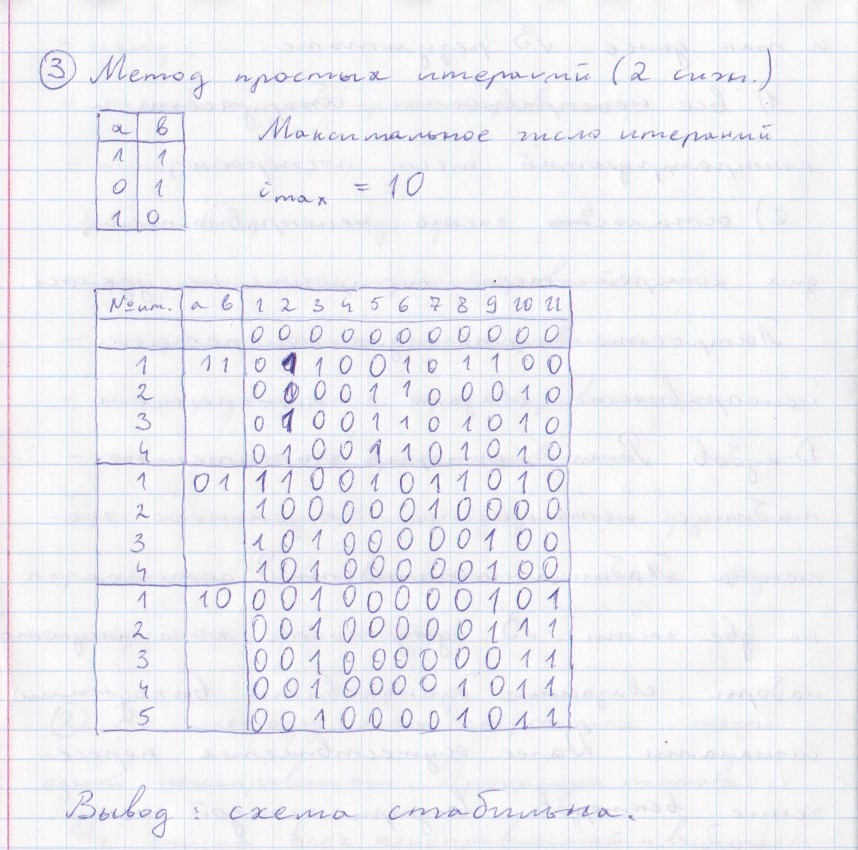 3 Метод простых итераций (2 сигн.)
а в
1 1
0 1
1 0
Максимальное число итераний
imax = 10
№ ит. а в 1 2 3 4 5 6 7 8 9 10 11
0 0 0 0 0 0 0 0 0 0 0
1 1 1 0 1 1 0 0 1 0 1 1 0 0
2 0 0 0 0 1 1 0 0 0 1 0
3 0 1 0 0 1 1 0 1 0 1 0
4 0 1 0 0 1 1 0 1 0 1 0
1 0 1 1 1 0 0 1 0 1 1 0 1 0
2 1 0 0 0 0 0 1 0 0 0 0
3 1 0 1 0 0 0 0 0 1 0 0
4 1 0 1 0 0 0 0 0 1 0 0
1 1 0 0 0 1 0 0 0 0 0 1 0 1
2 0 0 1 0 0 0 0 0 1 1 1
3 0 0 1 0 0 0 0 0 0 1 1
4 0 0 1 0 0 0 0 1 0 1 1
5 0 0 1 0 0 0 0 1 0 1 1
Вывод: схема стабильна.